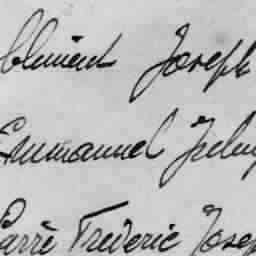 Clément Joseph
Emmanuel
Pierre Frederic Josep